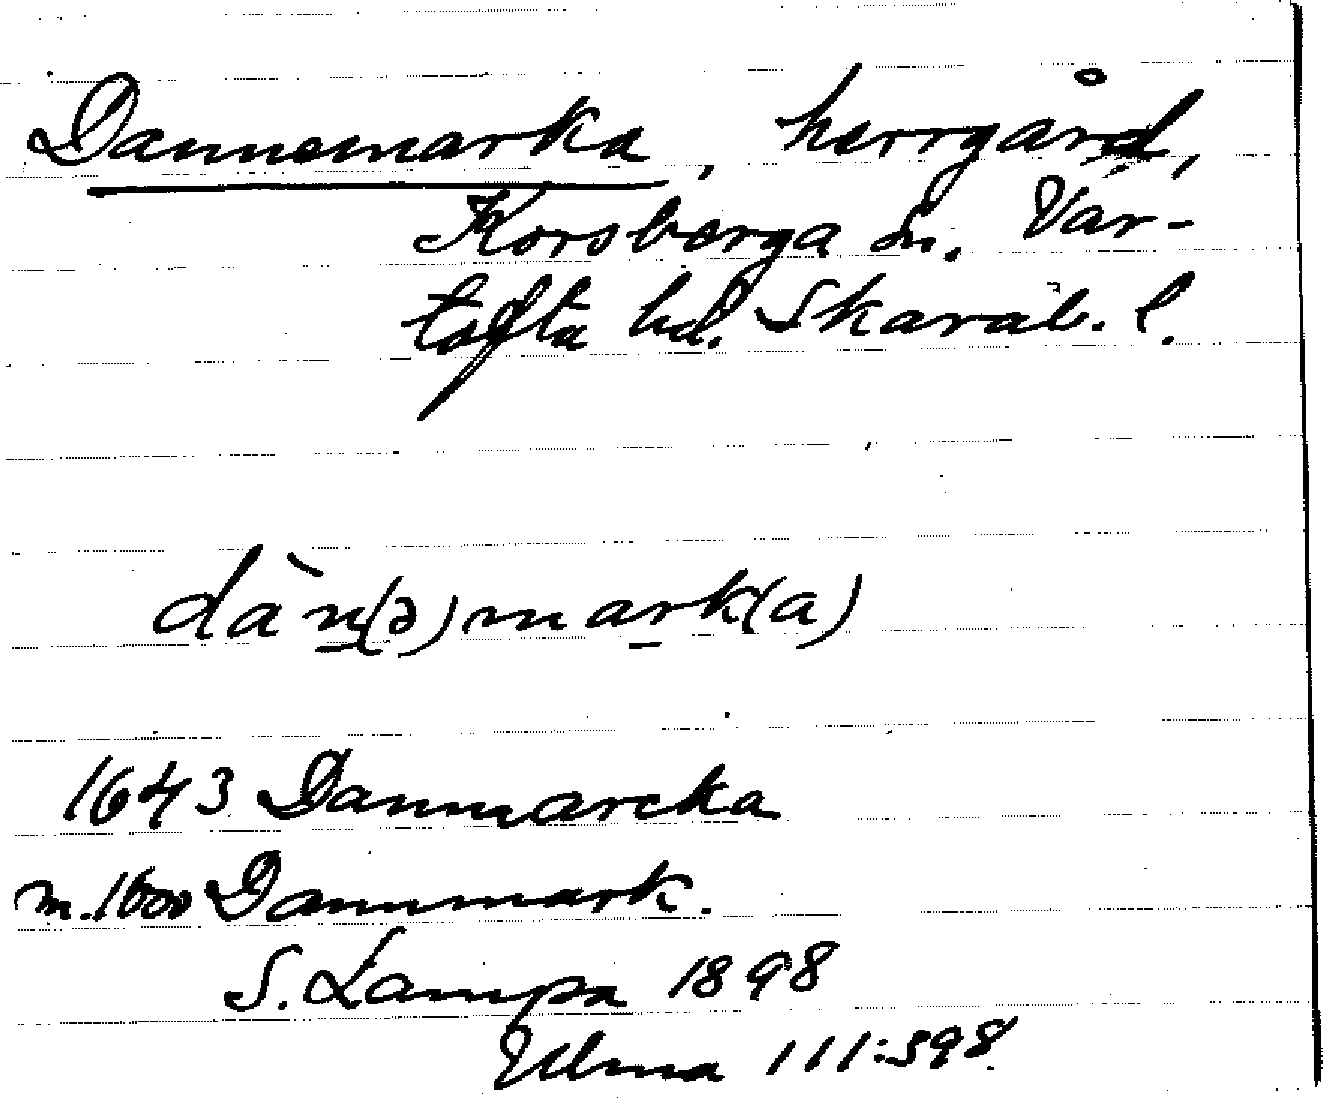 Dannemarka, herrgård,
Korsberga sn. Var-
tofta hd. Skarab. l.
dàn(ə)mark(a)
1643 Danmarcka
m.1600 Danmark.
S. Lampa 1898
Ulma 111:598.